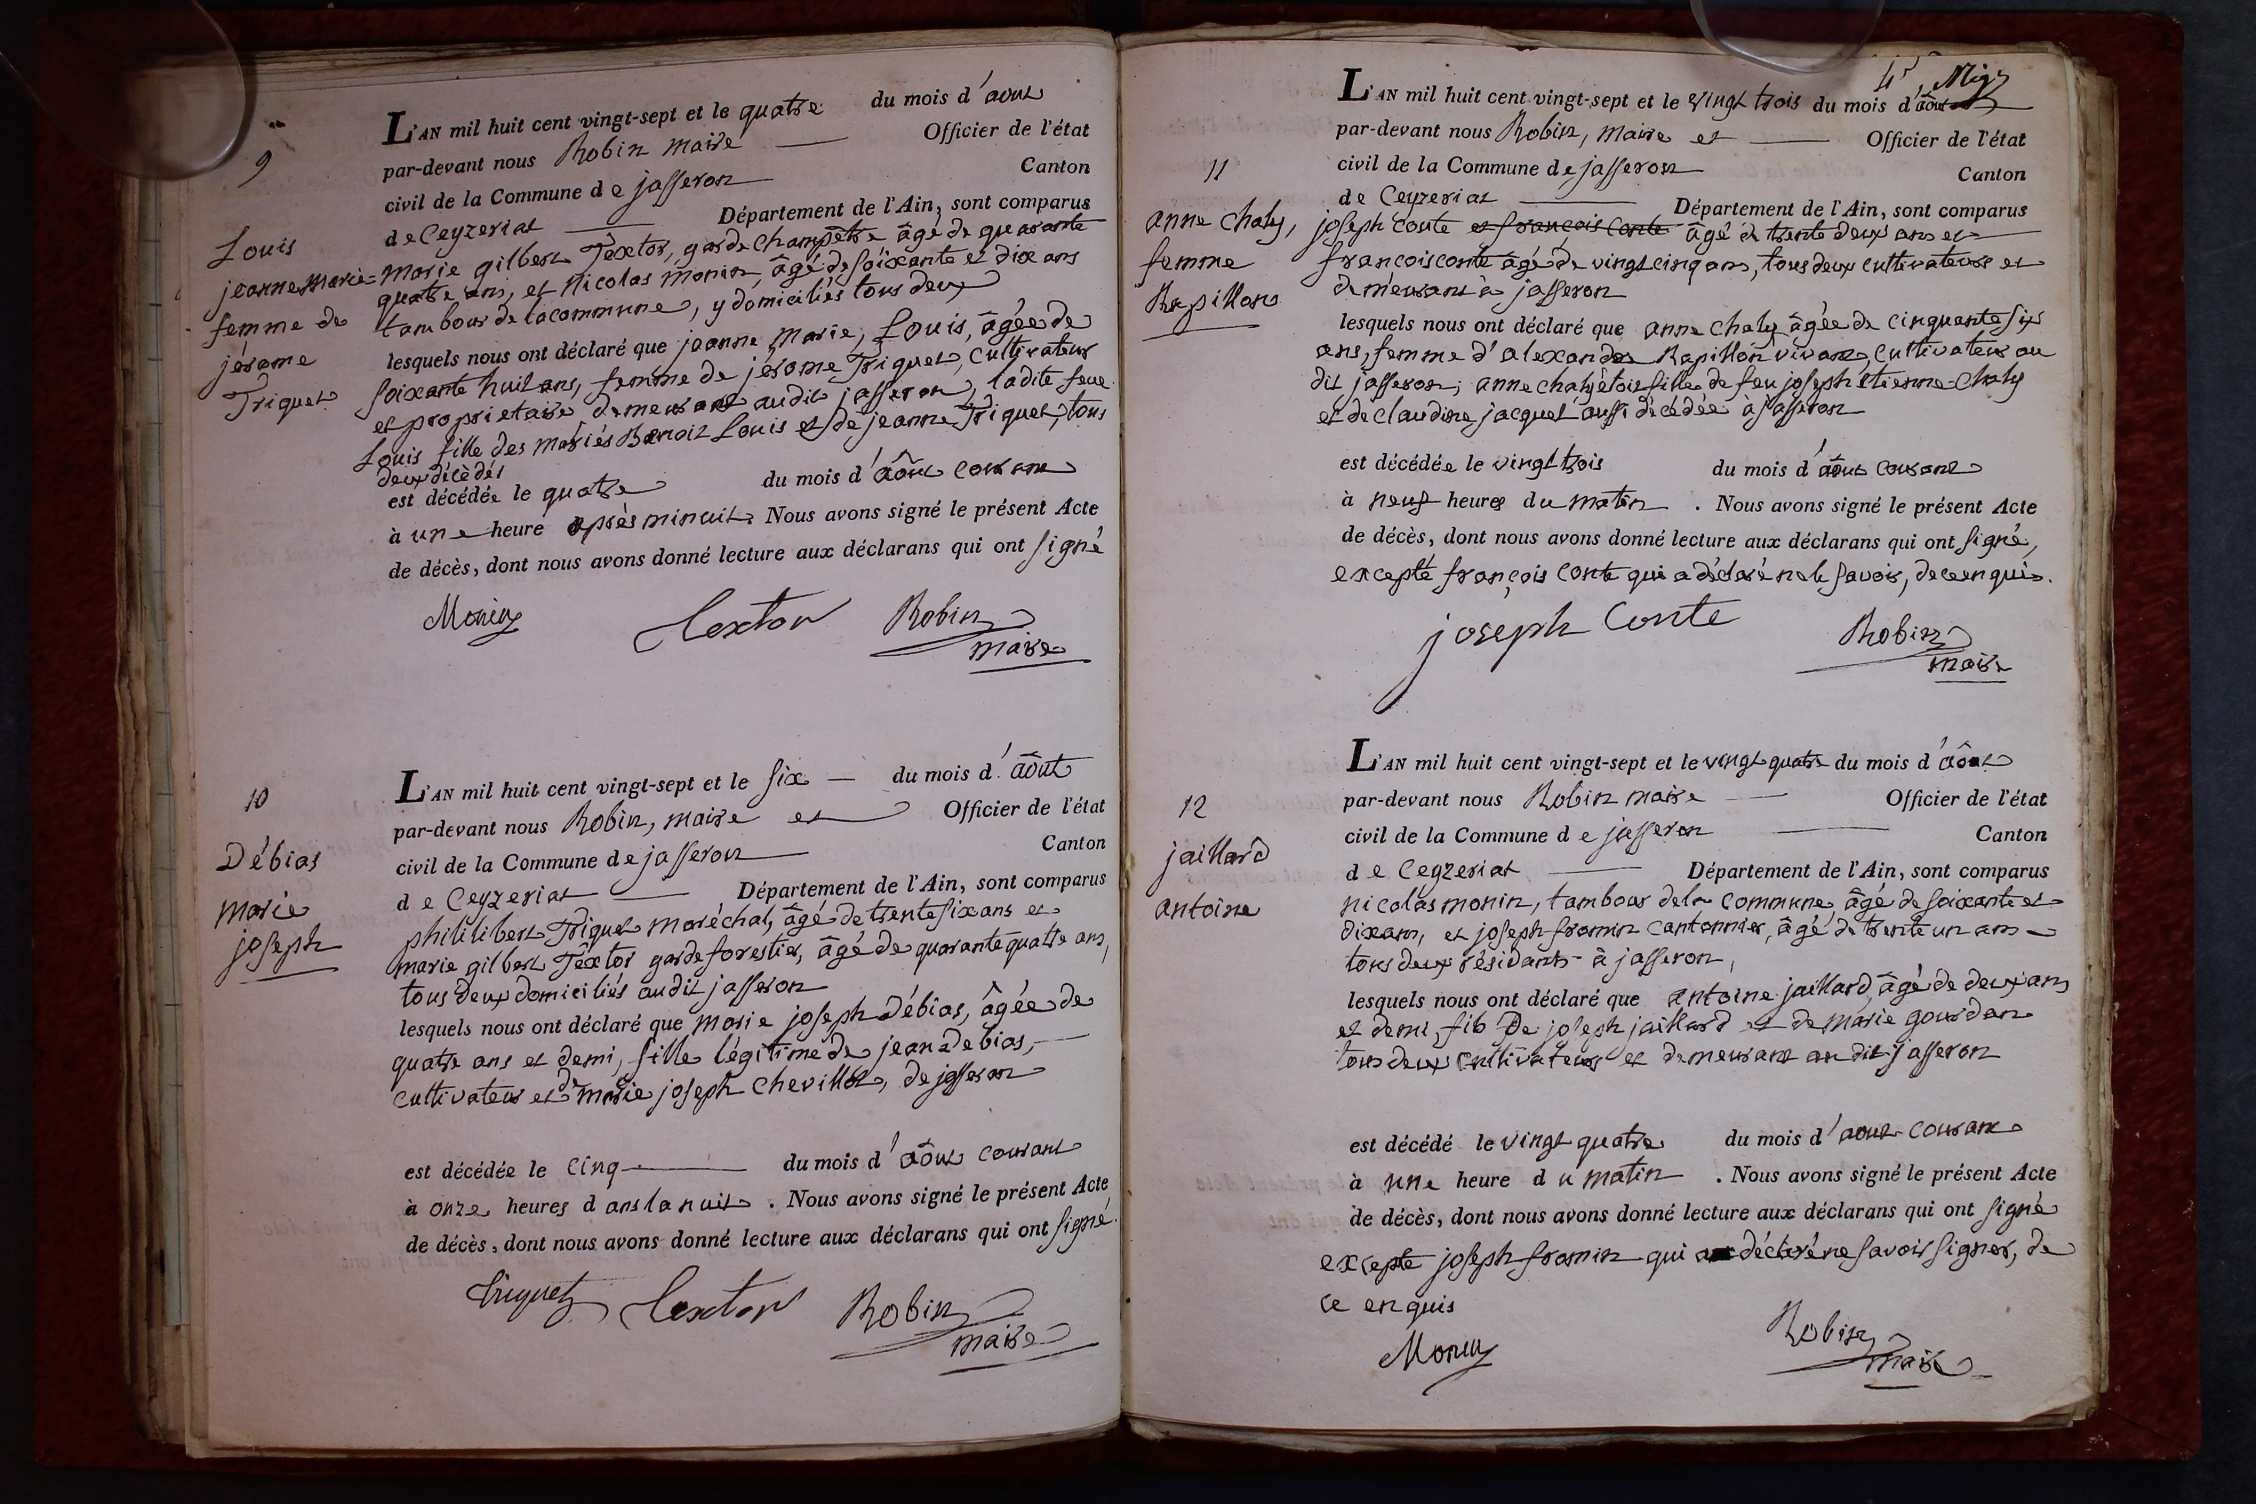 9
Louis
jeanne Marie=
femme de
jérome
Triquet
L'AN mil huit cent vingt-sept et le quatre du mois d'août
par-devant nous Robin maire — Officier de l'état
civil de la Commune de jasseron Canton
de Ceyzeriat — Département de l'Ain, sont comparus
marie gilbert Textor, garde champêtre âgé de quarante
quatre ans, et Nicolas monin, âgé de soixante et dix ans
tambour de la commune, y domiciliés tous deux
lesquels nous ont déclaré que jeanne marie, Louis, âgée de
soixante huit ans, femme de jérome Triquet, cultivateur
et propriétaire demeurant audit jasseron, ladite feue
Louis fille des mariés Benoit Louis et de jeanne Triquet, tous
deux décédés
est décédée le quatre du mois d'août courant
à une heure après minuit. Nous avons signé le présent Acte
de décès, dont nous avons donné lecture aux déclarans qui ont signé
Monin Textor Robin
maire
10
Débias
marie
joseph
L'AN mil huit cent vingt-sept et le six — du mois d'août
par-devant nous Robin, maire et — Officier de l'état
civil de la Commune de jasseron — Canton
de Ceyzeriat — Département de l'Ain, sont comparus
philibert Triquet maréchal, âgé de trente six ans et
marie gilbert Textor garde forestier, âgé de quarante quatre ans,
tous deux domiciliés audit jasseron
lesquels nous ont déclaré que marie joseph Débias, âgée de
quatre ans et demi, fille légitime de jean Debias,
cultivateur et de marie joseph Chevillot, de jasseron
est décédée le cinq — du mois d'août courant
à onze heures dans la nuit. Nous avons signé le présent Acte
de décès, dont nous avons donné lecture aux déclarans qui ont signé.
Triquet Textor Robin
maire
4
11
anne Chaly,
femme
Rapillon
L'AN mil huit cent vingt-sept et le vingt trois du mois d'août
par-devant nous Robin, maire et — Officier de l'état
civil de la Commune de jasseron Canton
de Ceyzeriat — Département de l'Ain, sont comparus
joseph Conte et francois Conte âgé de trente deux ans et
francois conte âgé de vingt cinq ans, tous deux cultivateurs et
demeurant à jasseron
lesquels nous ont déclaré que anne Chaly âgée de cinquante six
ans, femme d'alexandre Rapillon vivant, cultivateur au
dit jasseron; anne chaly étoit fille de feu joseph étienne Chaly
et de claudine jacquet aussi décédée à jasseron
est décédée le vingt trois du mois d'août courant
à neuf heures du matin. Nous avons signé le présent Acte
de décès, dont nous avons donné lecture aux déclarans qui ont signé,
excepté françois Conte qui a déclaré ne le savoir, de ce enquis.
joseph Conte Robin
maire
12
jaillard
antoine
L'AN mil huit cent vingt-sept et le vingt quatre du mois d'août
par-devant nous Robin maire — Officier de l'état
civil de la Commune de jasseron — Canton
de Ceyzeriat — Département de l'Ain, sont comparus
nicolas monin, tambour de la commune âgé de soixante et
dix ans, et joseph fromin cantonnier, âgé de trente un ans —
tous deux résidants à jasseron,
lesquels nous ont déclaré que antoine jaillard, âgé de deux ans
et demi, fils de joseph jaillard et de marie gourdan
tous deux cultivateurs et demeurant audit jasseron
est décédé le vingt quatre du mois d'août courant
à une heure du matin. Nous avons signé le présent Acte
de décès, dont nous avons donné lecture aux déclarans qui ont signé
excepté joseph fromin qui a déclaré ne savoir signer, de
ce enquis
Monin Robin
maire